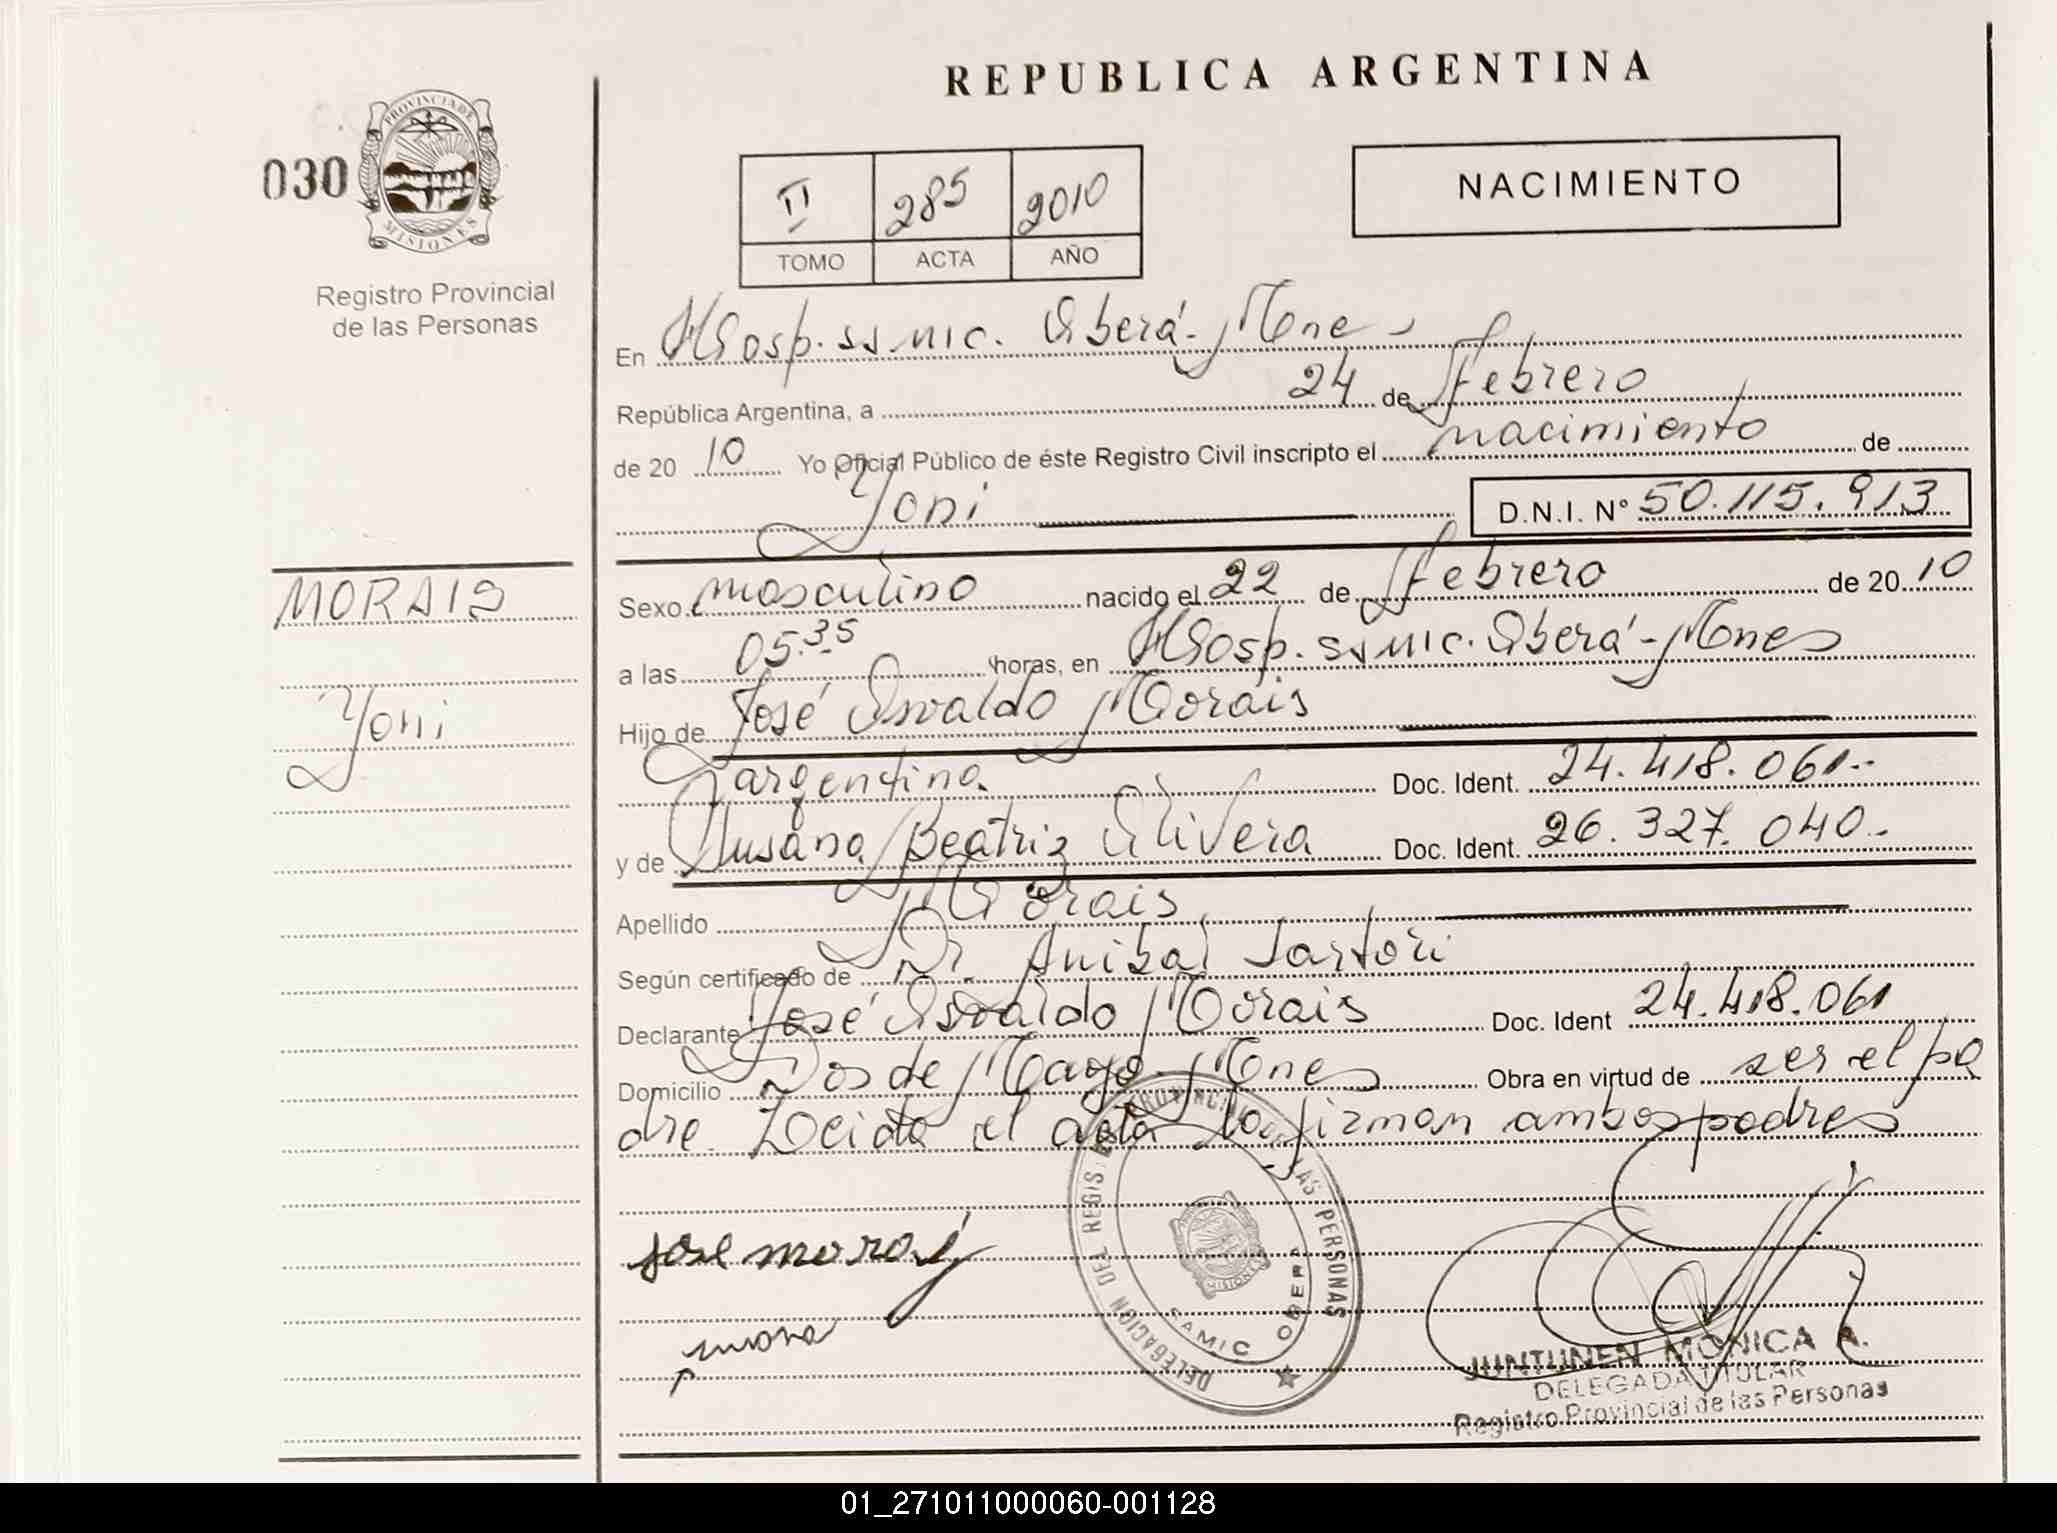 REPUBLICA ARGENTINA
030
PROVINCIA DE
MISIONES
Registro Provincial
de las Personas
II 285 2010
TOMO ACTA AÑO
NACIMIENTO
En Hosp. ss mic. Oberá - Mnes
República Argentina, a 24 de Febrero
de 20 10 Yo Oficial Público de éste Registro Civil inscripto el nacimiento de
Yoni
D.N.I. N° 50.115.913
MORAIS
Yoni
Sexo masculino nacido el 22 de Febrero de 20 10
a las 05.35 horas, en Hosp. ss mic. Oberá - Mnes
Hijo de José Osvaldo Morais
argentina Doc. Ident. 24.418.061.-
y de Susana Beatriz Olivera Doc. Ident. 26.327.040.-
Apellido Morais
Según certificado de Dr. Anibal Sartori
Declarante José Osvaldo Morais Doc. Ident 24.418.061
Domicilio Dos de Mayo - Mnes Obra en virtud de ser el pa
dre. Leida el acta la firman ambos padres
jose morais
DELEGACION DEL REGISTRO PROVINCIAL DE LAS PERSONAS
MISIONES
SAMIC OBERA
JUNTUNEN MONICA A.
DELEGADA TITULAR
Registro Provincial de las Personas
01_271011000060-001128